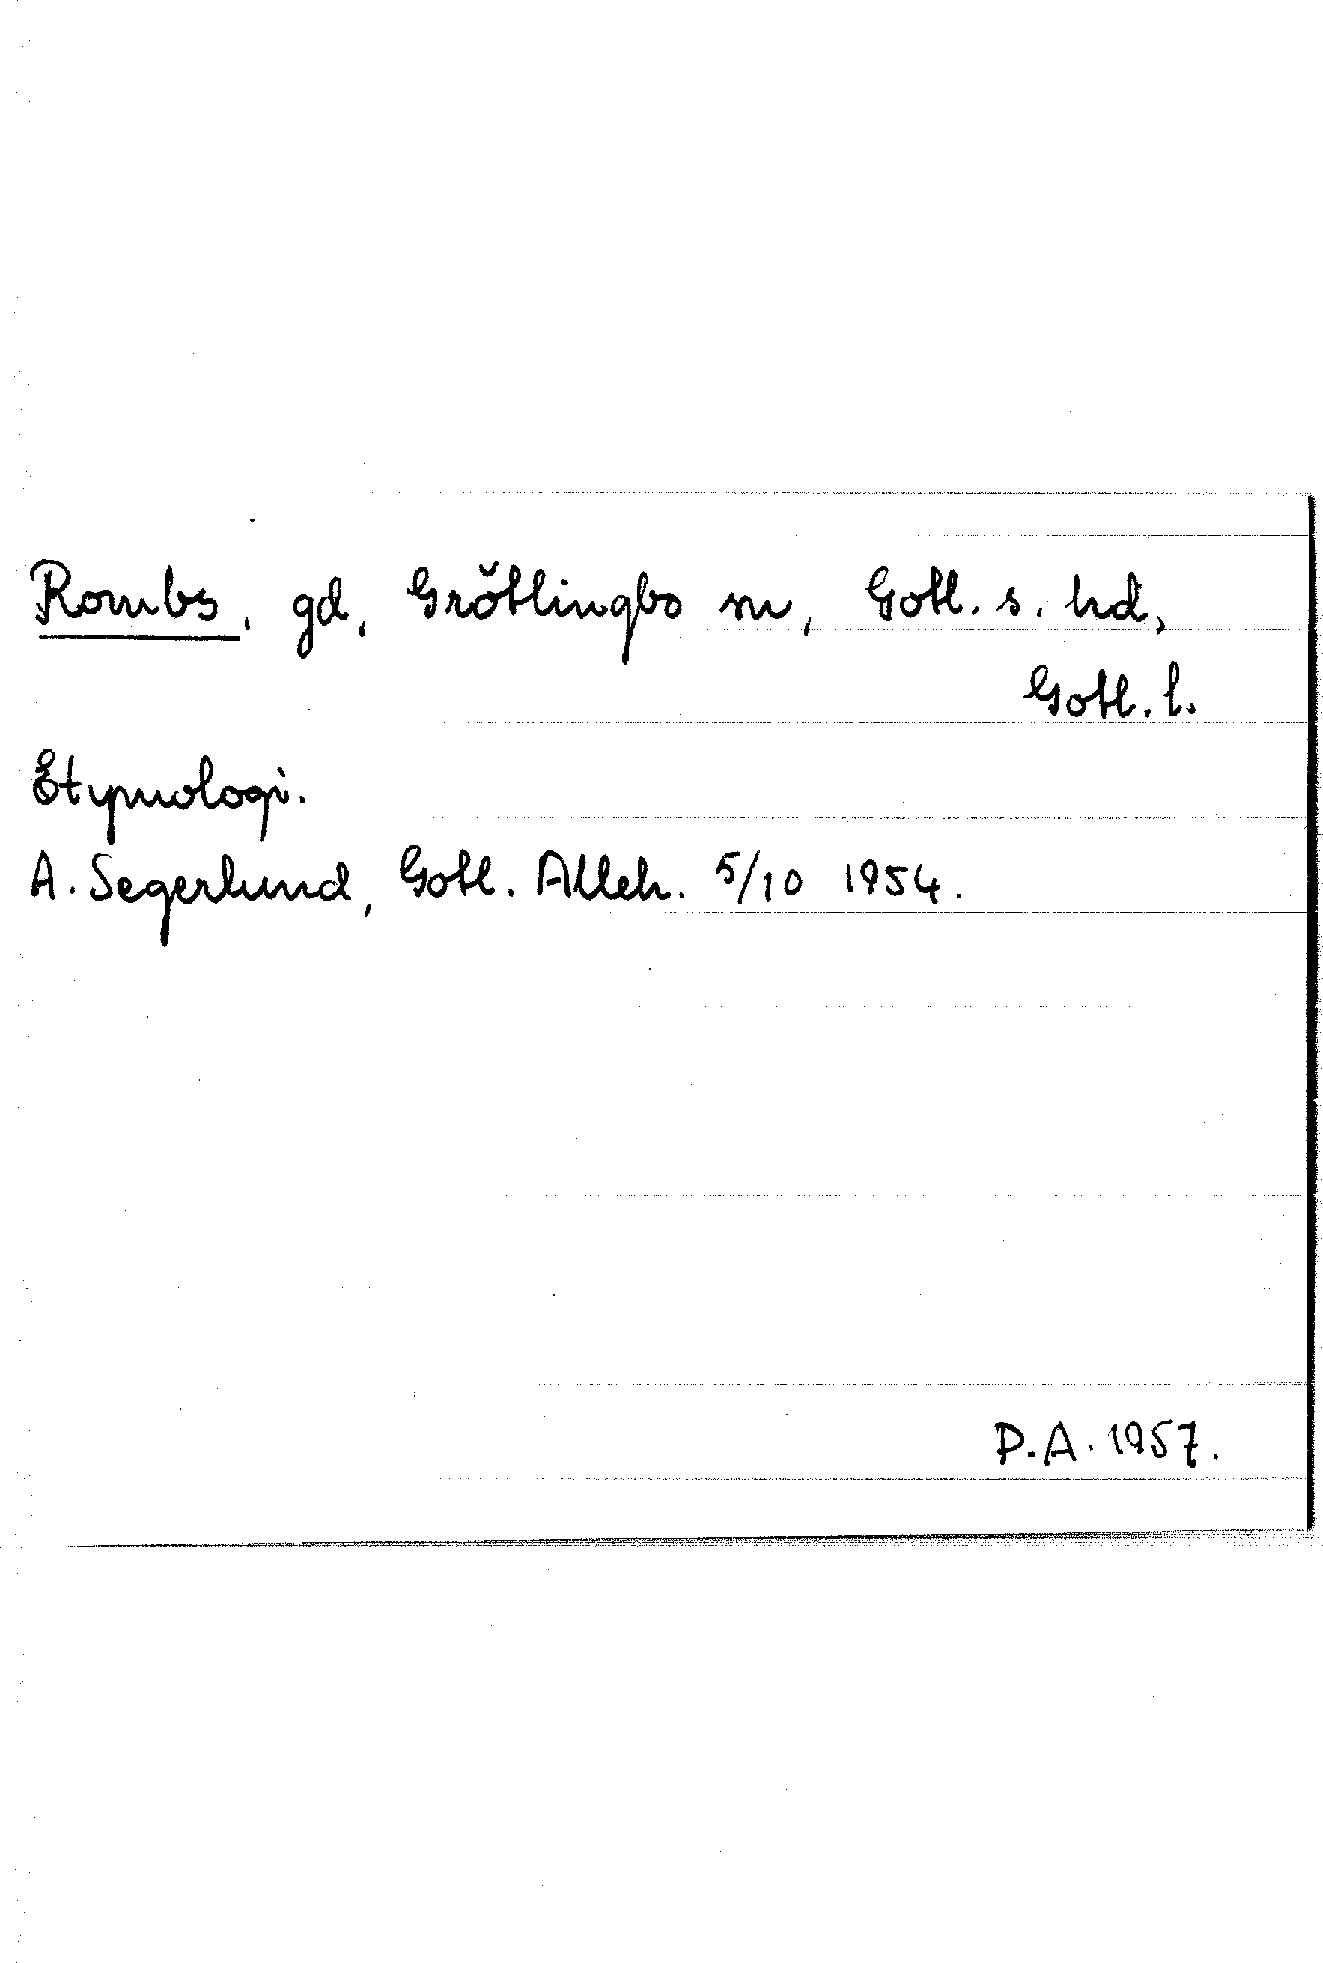 Rombs, gd, Grötlingbo sn, Gotl. s. hd,
Gotl. l.
Etymologi.
A. Segerlund, Gotl. Alleh. 5/10 1954.
P.A. 1957.